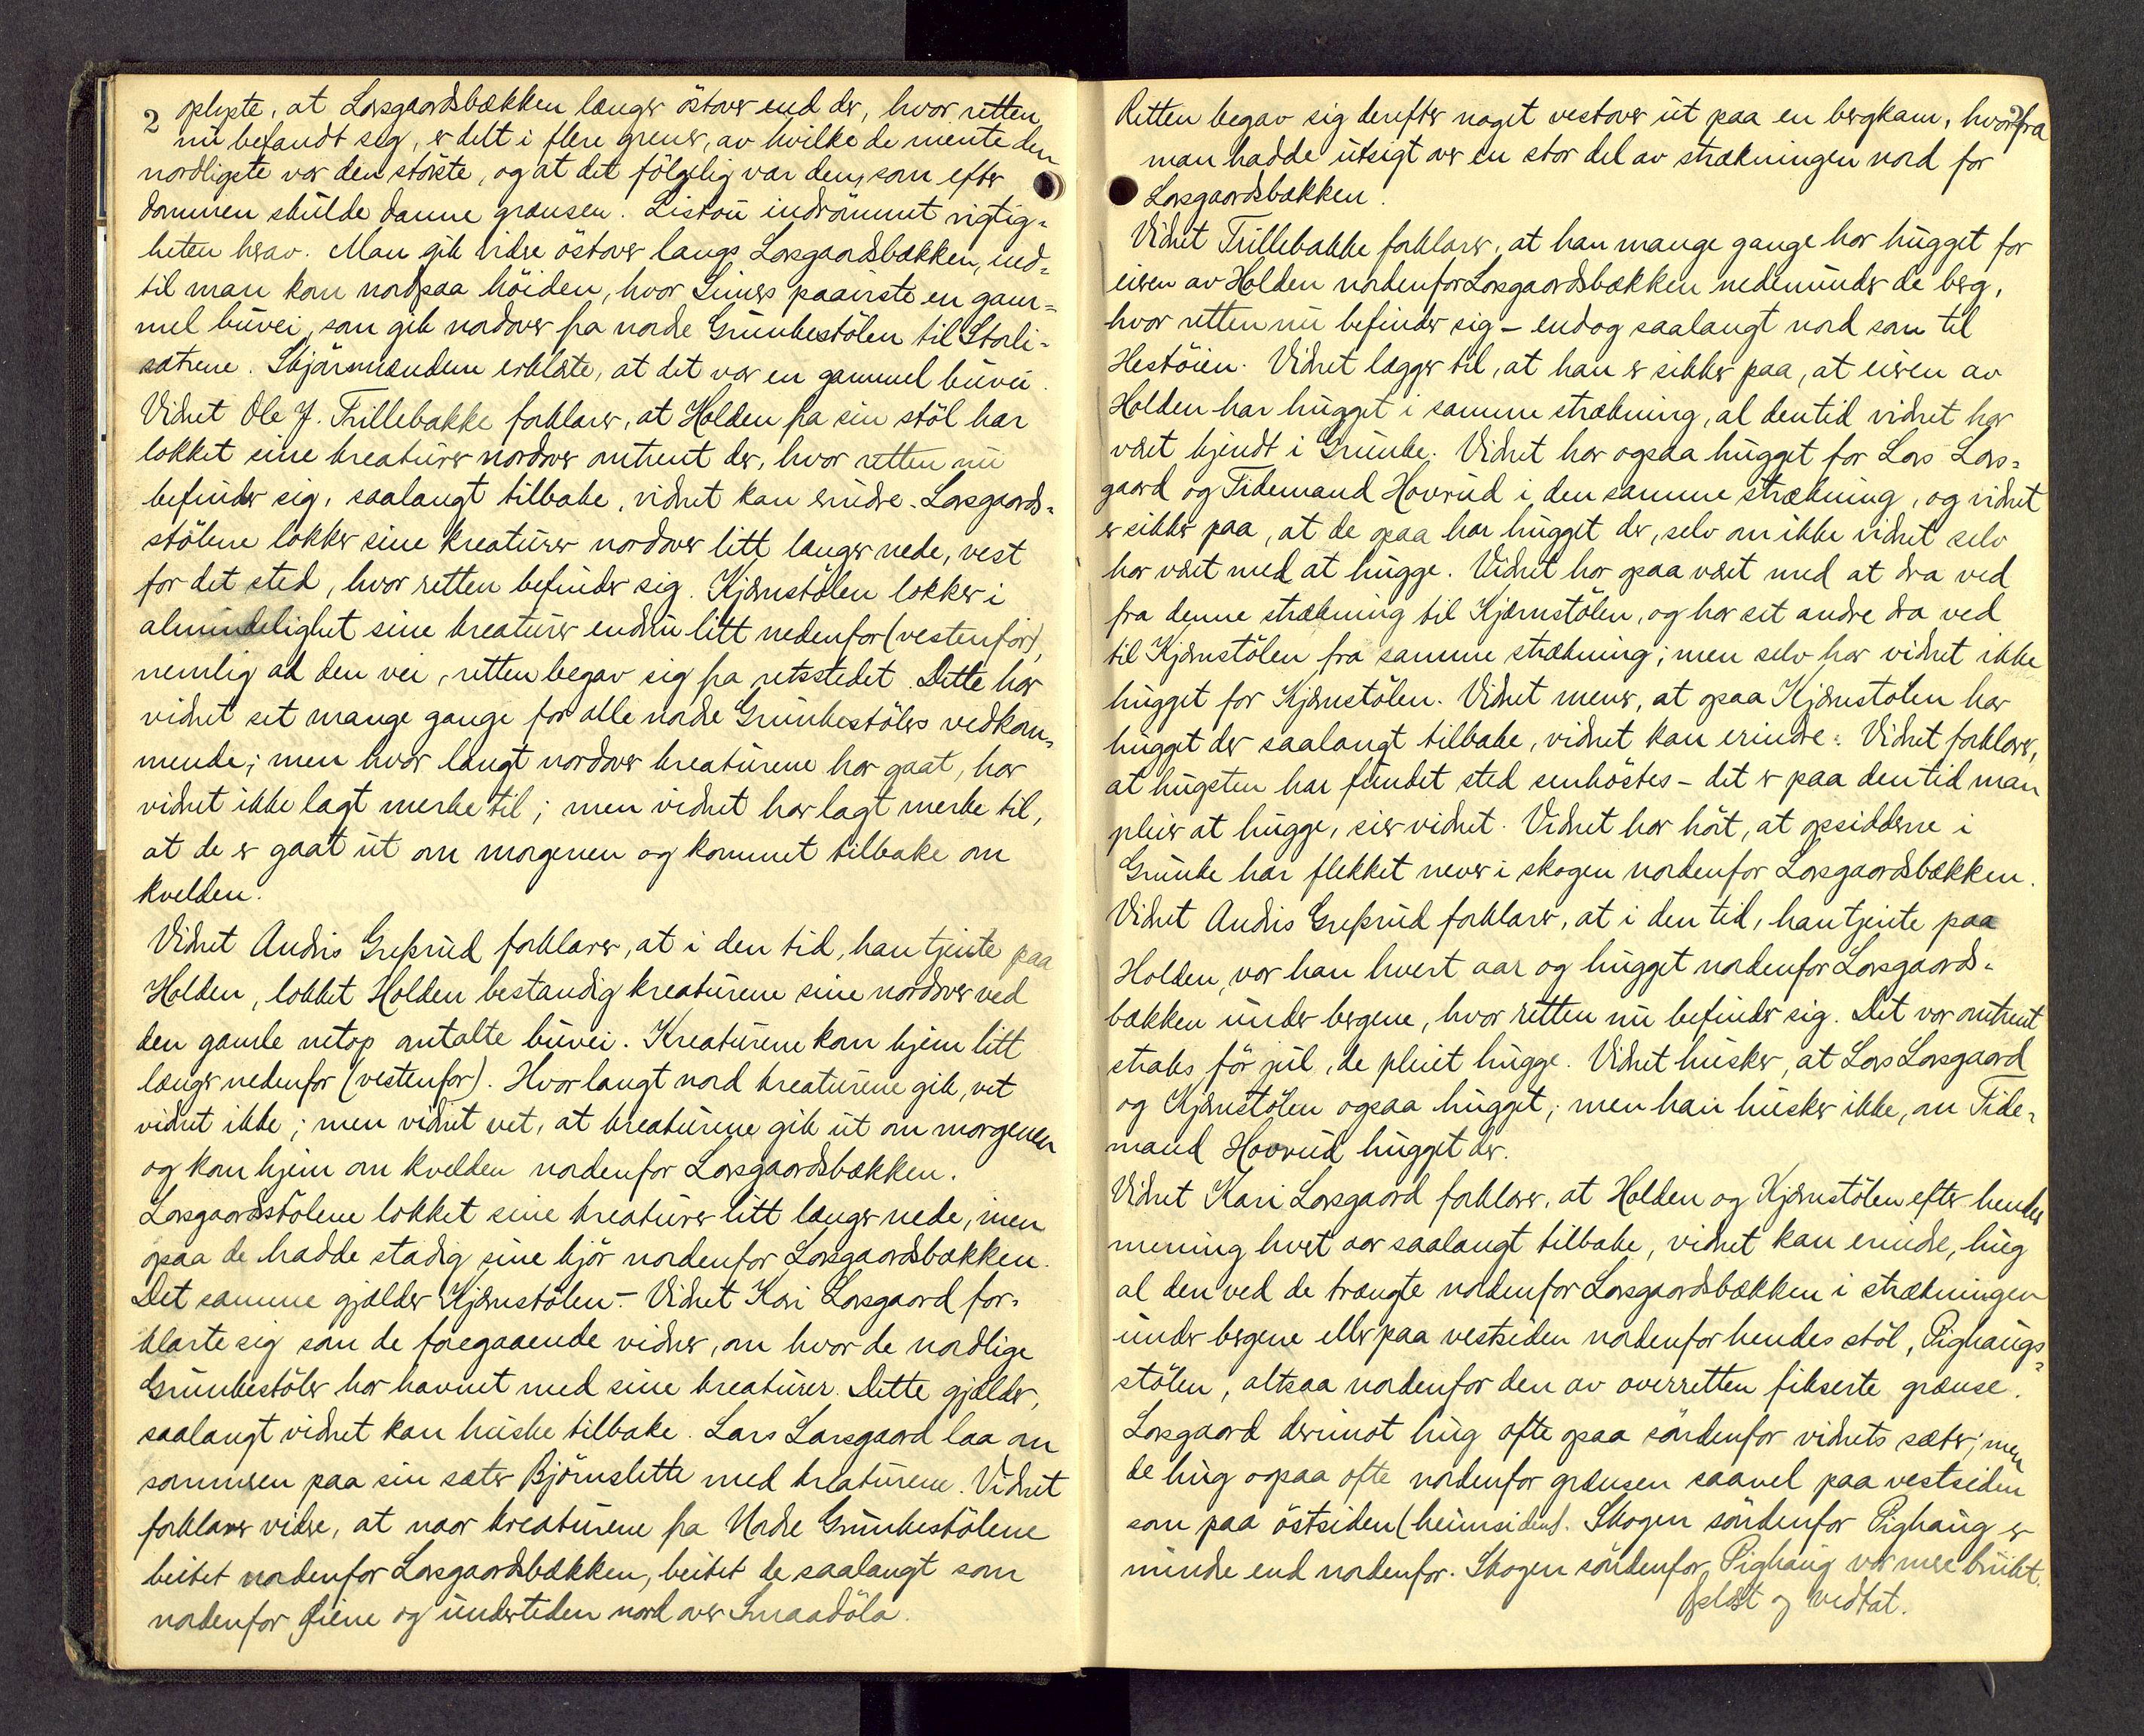 2 oplyste, at Larsgaardsbækken længer östover end der, hvor retten
nu befandt sig, er delt i flere grener, av hvilke de mente den
nordligste var den störste, og at det fölgelig var den, som efter
dommen skulde danne grænsen. Listou indrömmet rigtig-
heten herav. Man gik videre östover langs Larsgaardsbækken, ind-
til man kom nordpaa höiden, hvor Liners paaviste en gam-
mel buvei, som gik nordover fra nordre Grunkestölen til Storli-
sætrene. Skjönsmændene erklærte, at det var en gammel buvei.
Vidnet Ole J. Trillebakke forklarer, at Holden fra sin stöl har
lokket sine kreaturer nordover omtrent der, hvor retten nu
befinder sig, saalangt tilbake, vidnet kan erindre. Larsgaards-
stölene lokker sine kreaturer nordover litt længer nede, vest
for det sted, hvor retten befinder sig. Kjærnstölen lokker i
almindelighet sine kreaturer endnu litt nedenfor (vestenfor),
nemlig ad den vei, retten begav sig fra retsstedet. Dette har
vidnet set mange gange for alle nordre Grunkestölers vedkom-
mende; men hvor langt nordover kreaturene har gaat, har
vidnet ikke lagt merke til; men vidnet har lagt merke til,
at de er gaat ut om morgenen og kommet tilbake om
kvelden.
Vidnet Andris Grefsrud forklarer, at i den tid, han tjente paa
Holden, lokket Holden bestandig kreaturene sine nordover ved
den gamle netop omtalte buvei. Kreaturene kom hjem litt
længer nedenfor (vestenfor). Hvor langt nord kreaturene gik, vet
vidnet ikke; men vidnet vet, at kreaturene gik ut om morgenen
og kom hjem om kvelden nordenfor Larsgaardsbækken.
Larsgaardsstölene lokket sine kreaturer litt længer nede, men
ogsaa de hadde stadig sine kjör nordenfor Larsgaardsbækken.
Det samme gjælder Kjærnstölen. - Vidnet Kari Larsgaard for-
klarte sig som de foregaaende vidner, om hvor de nordlige
Grunkestöler har havnet med sine kreaturer. Dette gjælder,
saalangt vidnet kan huske tilbake. Lars Larsgaard laa om
sommeren paa sin sæter Björnslette med kreaturene. Vidnet
forklarer videre, at naar kreaturene fra Nordre Grunkestölene
beitet nordenfor Larsgaardsbækken, beitet de saalangt som
nordenfor Öiene og undertiden nord over Smaadöla.
2
Retten begav sig derefter noget vestover ut paa en bergkam, hvorfra
man hadde utsigt over en stor del av strækningen nord for
Larsgaardsbækken.
Vidnet Trillebakke forklarer, at han mange gange har hugget for
eieren av Holden nordenfor Larsgaardsbækken nedenunder de berg,
hvor retten nu befinder sig - endog saalangt nord som til
Hestöien. Vidnet lægger til, at han er sikker paa, at eieren av
Holden har hugget i samme strækning, al den tid vidnet har
været kjendt i Grunke. Vidnet har ogsaa hugget for Lars Lars-
gaard og Tidemand Hovrud i den samme strækning, og vidnet
er sikker paa, at de ogsaa har hugget der, selv om ikke vidnet selv
har været med at hugge. Vidnet har ogsaa været med at dra ved
fra denne strækning til Kjærnstölen, og har set andre dra ved
til Kjærnstölen fra samme strækning; men selv har vidnet ikke
hugget for Kjærnstölen. Vidnet mener, at ogsaa Kjærnstölen har
hugget der saalangt tilbake, vidnet kan erindre. Vidnet forklarer,
at hugsten har fundet sted senhöstes - det er paa den tid man
pleier at hugge, sier vidnet. Vidnet har hört, at opsidderne i
Grunke har flekket never i skogen nordenfor Larsgaardsbækken.
Vidnet Andris Grefsrud forklarer, at i den tid, han tjente paa
Holden, var han hvert aar og hugget nordenfor Larsgaards-
bækken under bergene, hvor retten nu befinder sig. Det var omtrent
straks för jul, de pleiet hugge. Vidnet husker, at Lars Larsgaard
og Kjærnstölen ogsaa hugget; men han husker ikke, om Tide-
mand Hovrud hugget der.
Vidnet Kari Larsgaard forklarer, at Holden og Kjærnstölen efter hendes
mening hvert aar saalangt tilbake, vidnet kan erindre, hug
al den ved de trængte nordenfor Larsgaardsbækken i strækningen
under bergene eller paa vestsiden nordenfor hendes stöl, Pighaugs-
stölen, altsaa nordenfor den av overretten fikserte grænse.
Larsgaard derimot hug ofte ogsaa söndenfor vidnets sæter; men
de hug ogsaa ofte nordenfor grænsen saavel paa vestsiden
som paa östsiden (heimsiden). Skogen söndenfor Pighaug er
mindre end nordenfor. Skogen söndenfor Pighaug var mere brukt.
Oplæst og vedtat.